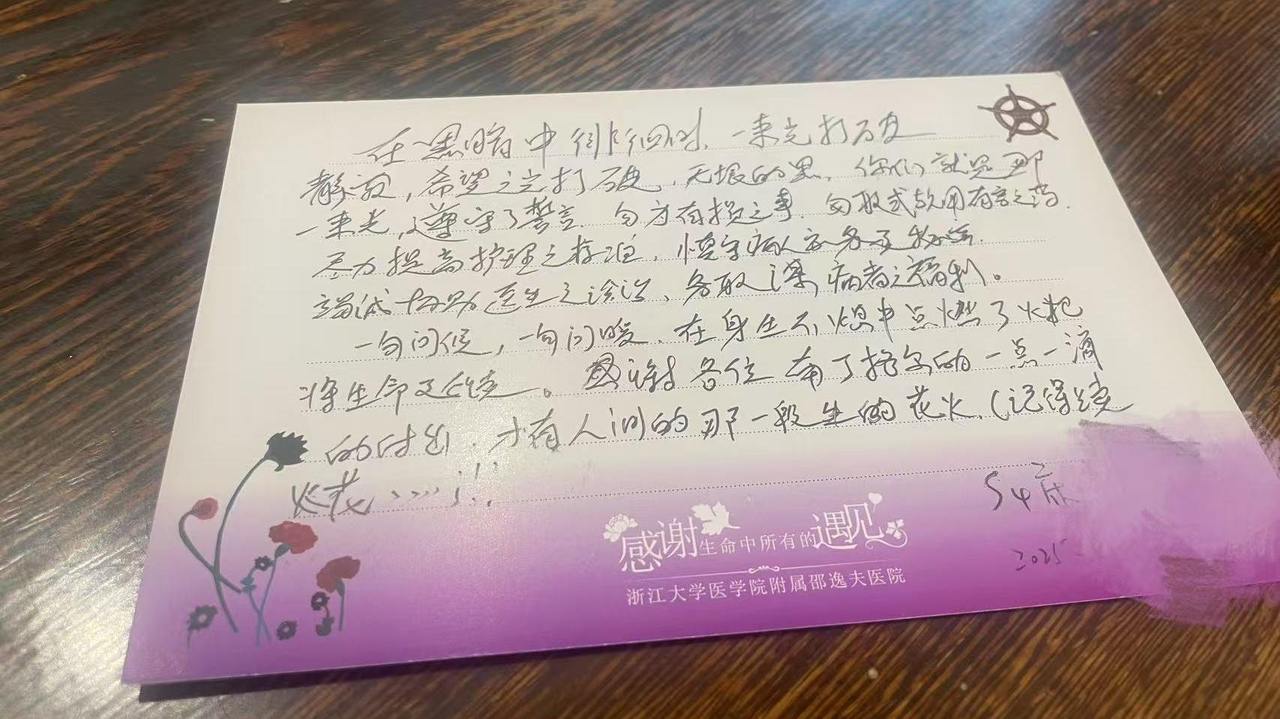 在黑暗中徘徊时,一束光打破
静寂,希望之光打破,无垠的黑,你们就是那
一束光,遵守了誓言.勿为有损之事.勿取或故用有害之药.
尽力提高护理之标准,慎守病人家务及秘密.
竭诚协助医生之诊治,务谋病者之福利。
一句问候,一句问暖,在身生不熄中点燃了火把
将生命延续。感谢各位 有了你的一点一滴
的付出,才有人间的那一段生的花火.(记得绕
火花……!!
54床
2025
感谢生命中所有的遇见
浙江大学医学院附属邵逸夫医院